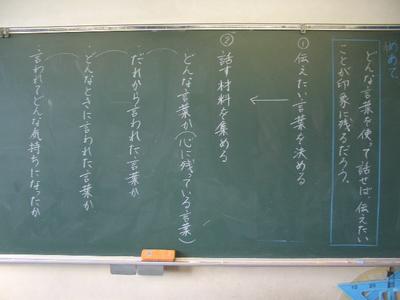 めあて
どんな言葉を使って話せば、伝えたい
ことが印象に残るだろう。
① 伝えたい言葉を決める
② 話す材料を集める
どんな言葉か(心に残っている言葉)
・だれから言われた言葉か
・どんなときに言われた言葉か
・言われてどんな気持ちになったか